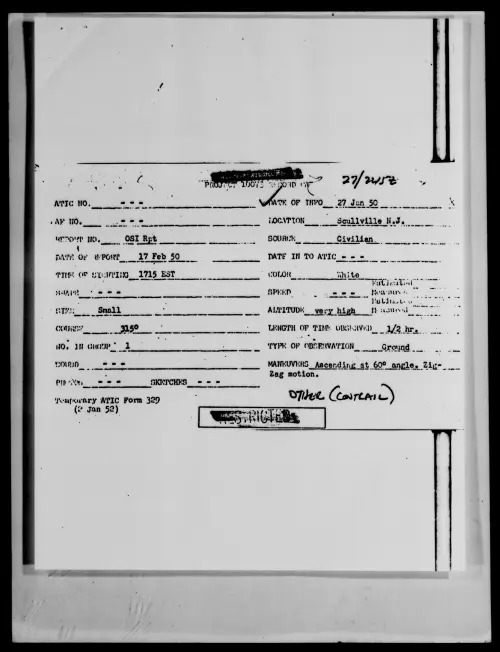 PROJECT 10073 RECORD 27/2215Z
ATIC NO. - - - DATE OF INFO 27 Jan 50
AF NO. - - - LOCATION Scullville N.J.
REPORT NO. OSI Rpt SOURCE Civilian
DATE OF REPORT 17 Feb 50 DATE IN TO ATIC - - -
TIME OF SIGHTING 1715 EST COLOR White
SHAPE - - - SPEED - - - Estimated Measured
SIZE Small ALTITUDE very high Estimated Measured
COURSE 315° LENGTH OF TIME OBSERVED 1/2 hr.
NO. IN GROUP 1 TYPE OF OBSERVATION Ground
SOUND - - - MANEUVERS Ascending at 60° angle. Zig-
Zag motion.
PHOTOS - - - SKETCHES - - -
OTHER (CONTRAIL)
Temporary ATIC Form 329
(2 Jan 52)
RESTRICTED